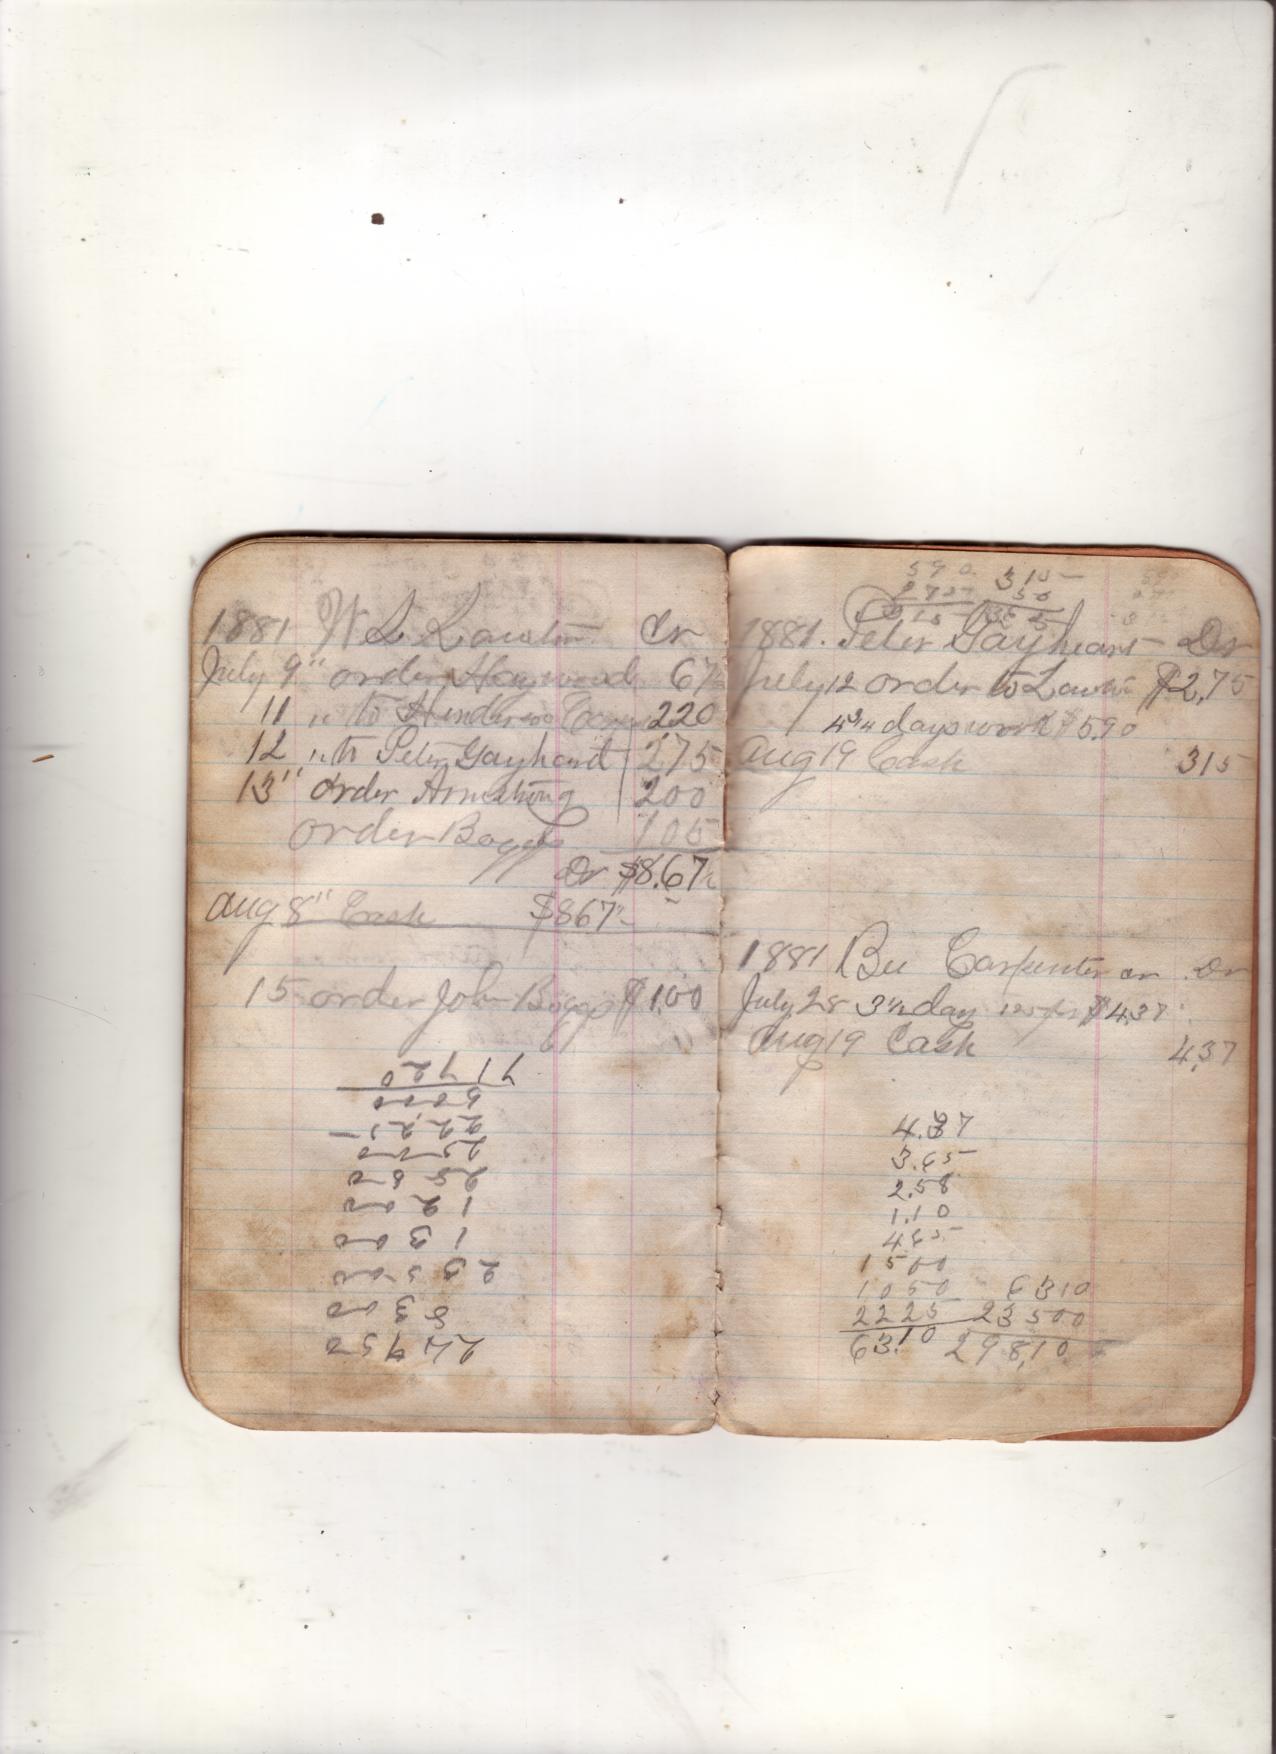 1881 W L Lawton Cr
July 9" order Haywood 67½
11 " to Henderson 2.20
12 " to Peter Gayheart 275
13" order Armstrong 200
order Boggs 105
Dr $8.67½
Aug 8" Cash $867½
15 order John Boggs $1.00
71720
5000
2225
2500
2580
1200
1300
23500
8300
590 315
275 50
315 365
1881. Peter Gayheart Dr
July 12 order to Lawton $2.75
4 3/4 days work $5.90
Aug 19 Cash 315
1881 Bee Carpenter Cr Dr
July 28 3½ day $4.37
Aug 19 Cash 4.37
4.37
3.65
2.58
1.10
465
1500
1050 6310
2225 23500
63.10 298,10